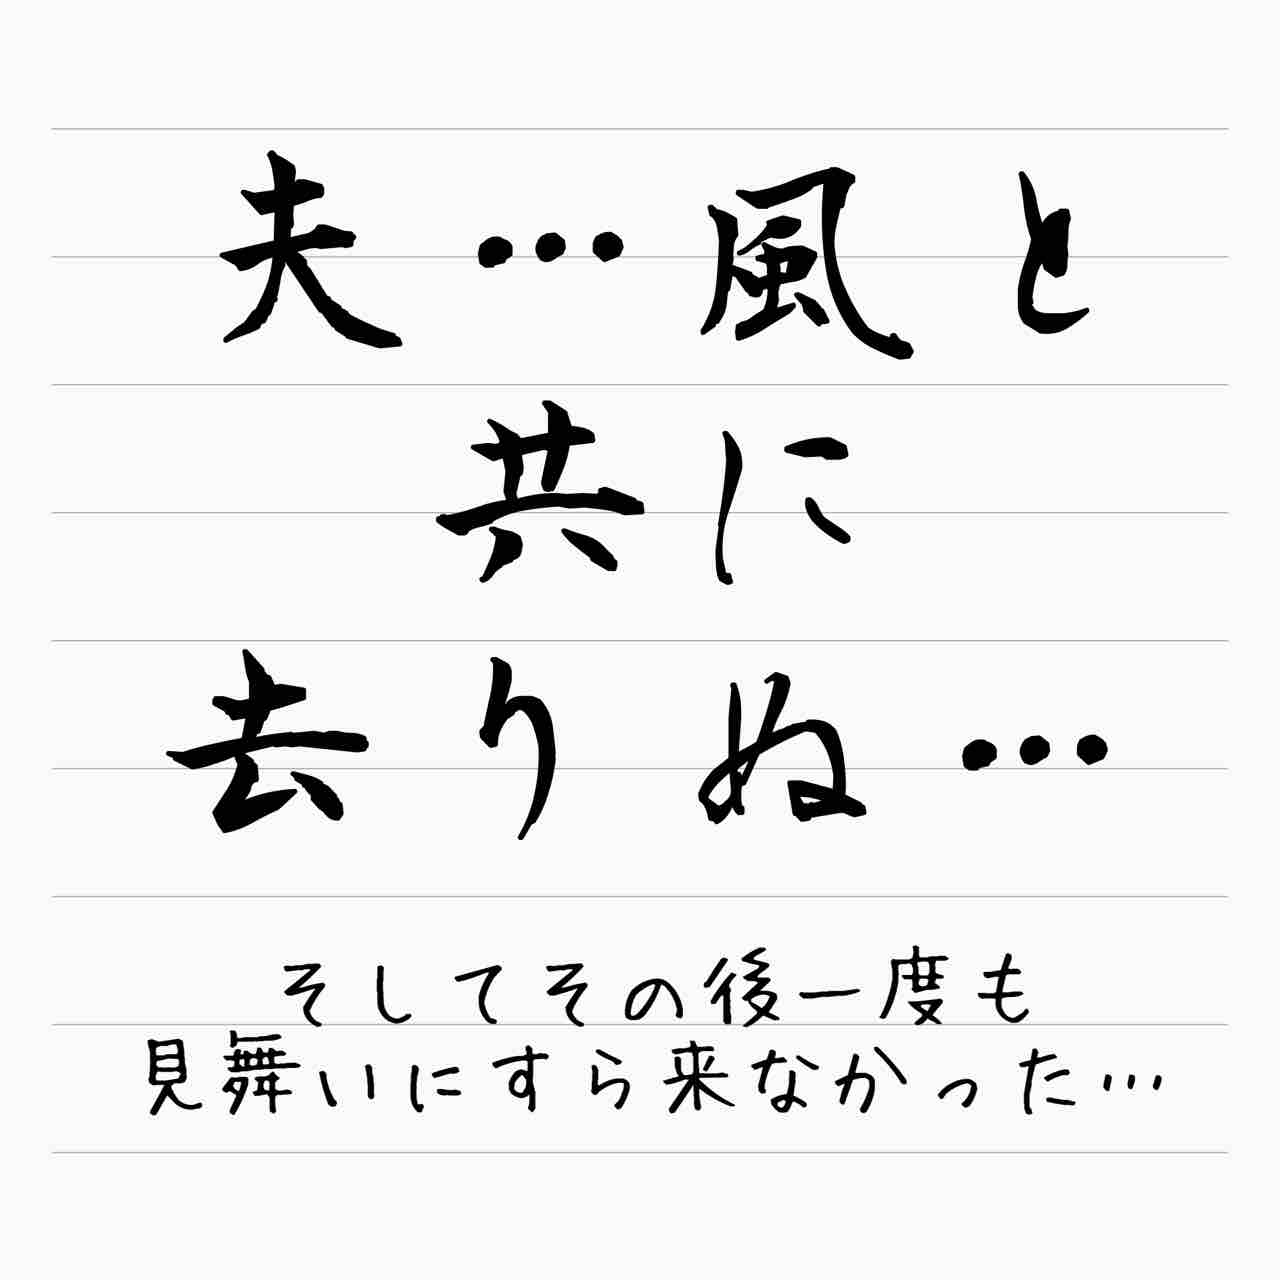 夫…風と
共に
去りぬ…
そしてその後一度も
見舞いにすら来なかった…